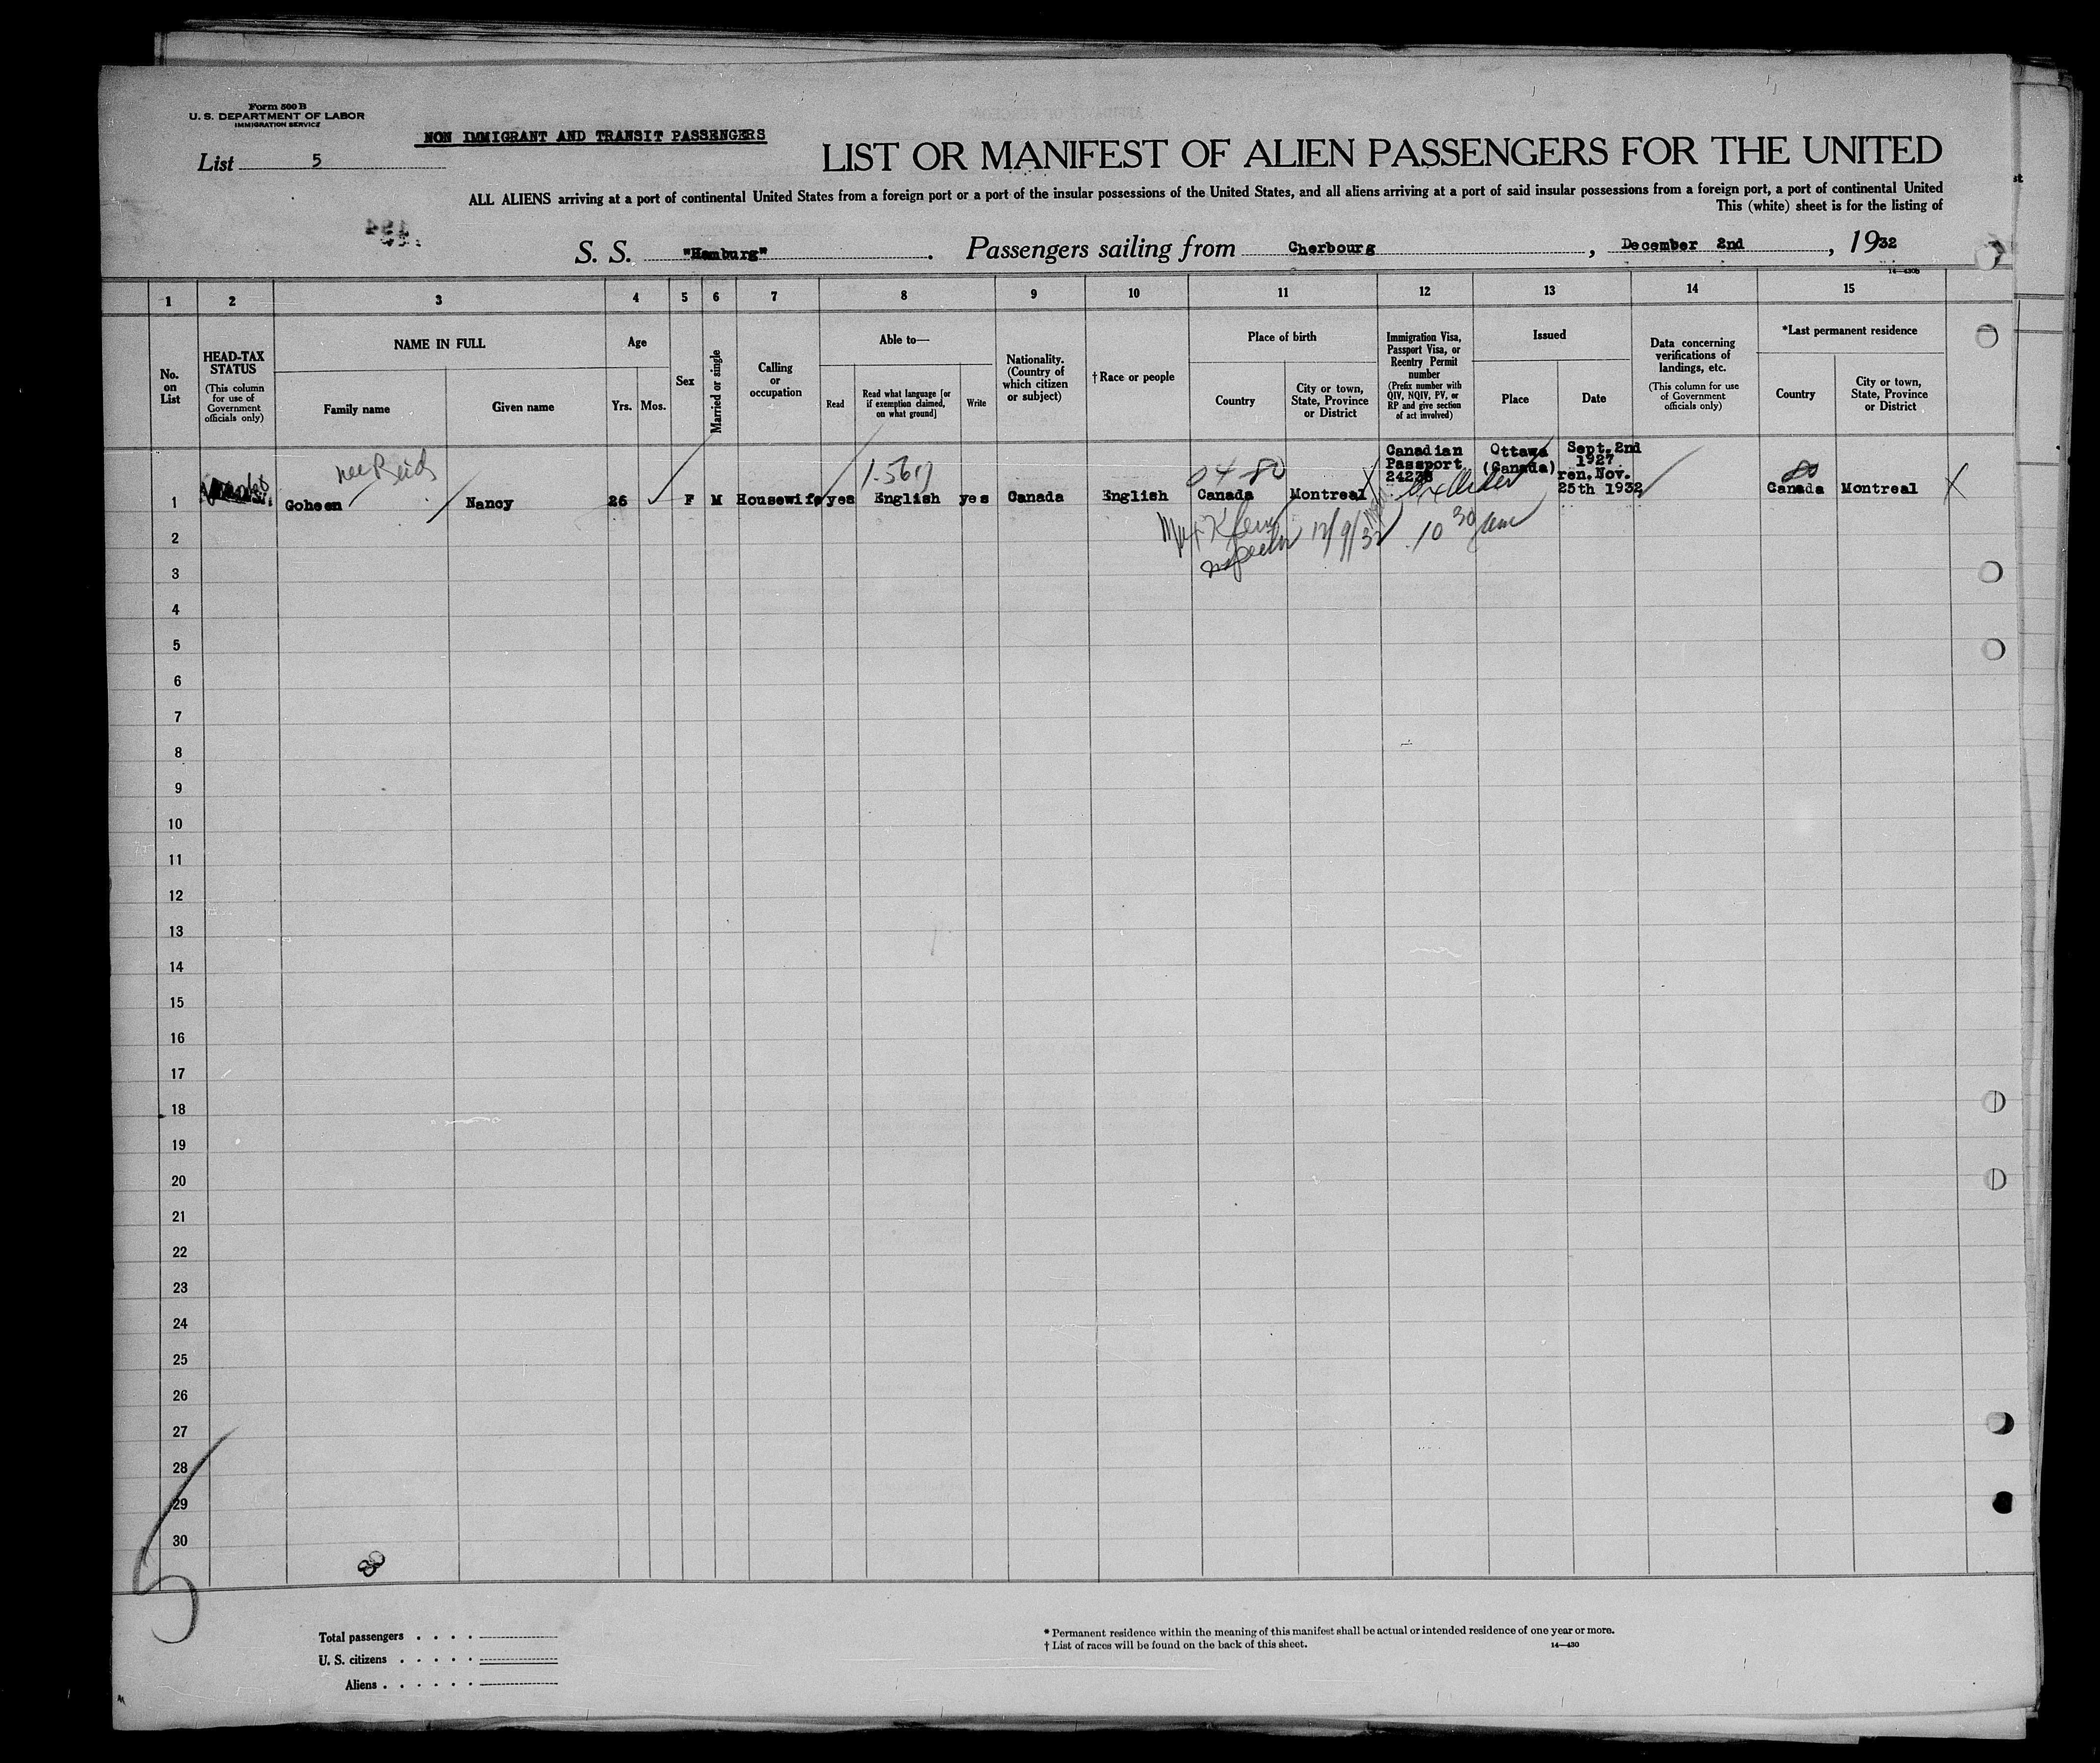 Form 500 B
U. S. DEPARTMENT OF LABOR
IMMIGRATION SERVICE
NON IMMIGRANT AND TRANSIT PASSENGERS
List 5
LIST OR MANIFEST OF ALIEN PASSENGERS FOR THE UNITED
ALL ALIENS arriving at a port of continental United States from a foreign port or a port of the insular possessions of the United States, and all aliens arriving at a port of said insular possessions from a foreign port, a port of continental United
This (white) sheet is for the listing of
S. S. "Hamburg". Passengers sailing from Cherbourg, December 2nd, 1932
14—430b
1 2 3 4 5 6 7 8 9 10 11 12 13 14 15
No. on List
HEAD-TAX STATUS
(This column for use of Government officials only)
NAME IN FULL
Family name
Given name
Age
Yrs. Mos.
Sex
Married or single
Calling or occupation
Able to—
Read
Read what language [or if exemption claimed, on what ground]
Write
Nationality. (Country of which citizen or subject)
† Race or people
Place of birth
Country
City or town, State, Province or District
Immigration Visa, Passport Visa, or Reentry Permit number
(Prefix number with QIV, NQIV, PV, or RP and give section of act involved)
Issued
Place
Date
Data concerning verifications of landings, etc.
(This column for use of Government officials only)
*Last permanent residence
Country
City or town, State, Province or District
nee Reid
Canadian Passport
Ottawa (Canada)
Sept. 2nd 1927
ren. Nov. 25th 1932
1 Goheen Nancy 26 F M Housewife yes English yes Canada English Canada Montreal Canada Montreal
12/9/32 10 30 am
2
3
4
5
6
7
8
9
10
11
12
13
14
15
16
17
18
19
20
21
22
23
24
25
26
27
28
29
30
5
Total passengers . . . .
U. S. citizens . . . . .
Aliens . . . . . .
* Permanent residence within the meaning of this manifest shall be actual or intended residence of one year or more.
† List of races will be found on the back of this sheet.
14—430